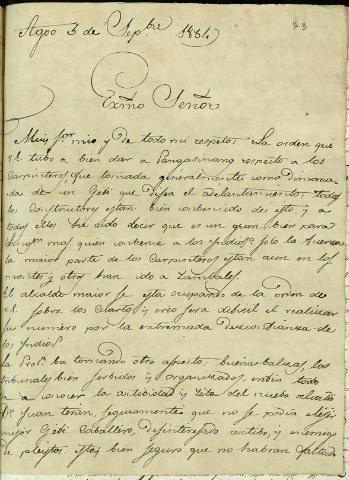 Agoo 3 de Sepbre 1834
73
Exmo Señor
Muy Sor mio y de todo mi respeto: La orden que
V.E. tubo a bien dar a Pangasinang respecto a los
Carpinteros, fue tomada generalmente como dimana-
da de un Gefe que desea el adelantamiento; todos
los Constructores estan bien convencidos de esto y a
todos ellos he oido decir que es un gran bien para
mas quien convence a los Yndios? solo la fuerza
la maior parte de los Carpinteros estan aun en los
montes y otros han ido a Zambales.
El alcalde maior se esta ocupando de la orden de
V.E. sobre los Cuartos y creo sera dificil el realizar
su numero por la estremada desconfianza de
los Yndios.
La Prova. ba tomando otro aspecto, buenas balsas, los
tribunales bien serbidos y organizados, en fin todo
da a conocer la actibidad y zelo del nuebo alcalde
Dn Juan teran, seguramente que no se podia elejir
mejor Gefe Caballero, desinteresado actibo, y enemigo
de pleitos. Estos, bien seguro que no habran faltado